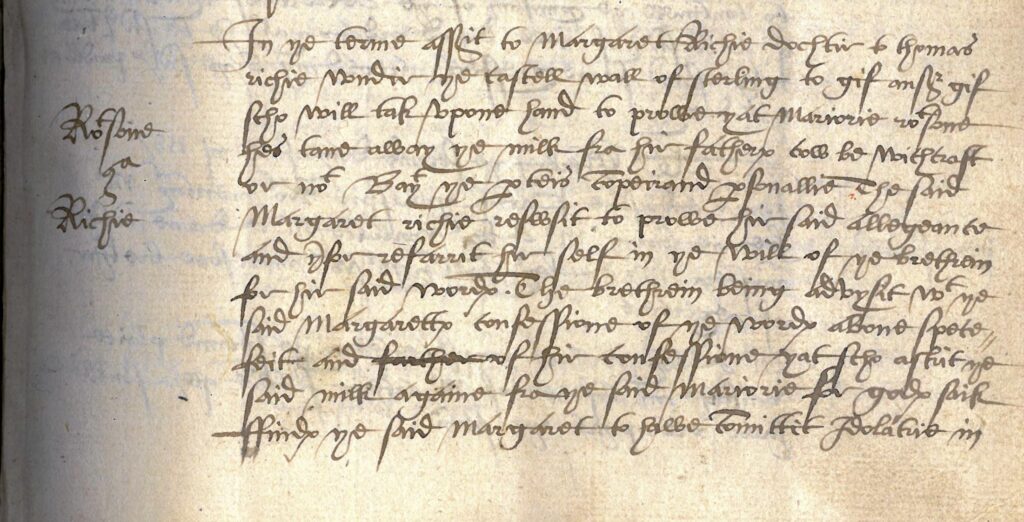 In ye terme assigit to Margaret Richie dochtir to thomas
richie wndir ye castell wall of sterling to gif ansr gif
scho will tak vpone hand to prowe yat Mariorie rosone
hes tane away ye milk fra hir fatherx cow be witchcraft
or not Bayt ye pteis compeirand psonallie The said
Margaret richie refwsit to prowe hir said allegeance
and yrfor refarrit hir self in ye will of ye brethrein
for hir said wordx. The brethrein being advysit wt ye
said Margarettx confessione of ye wordx abone spece=
feit and father of hir confessione yat scho askit ye
said milk againe fra ye said Mariorie for godx saik
ffindx ye said Margaret to hawe comittit Idolatrie in
Rosone
Richie